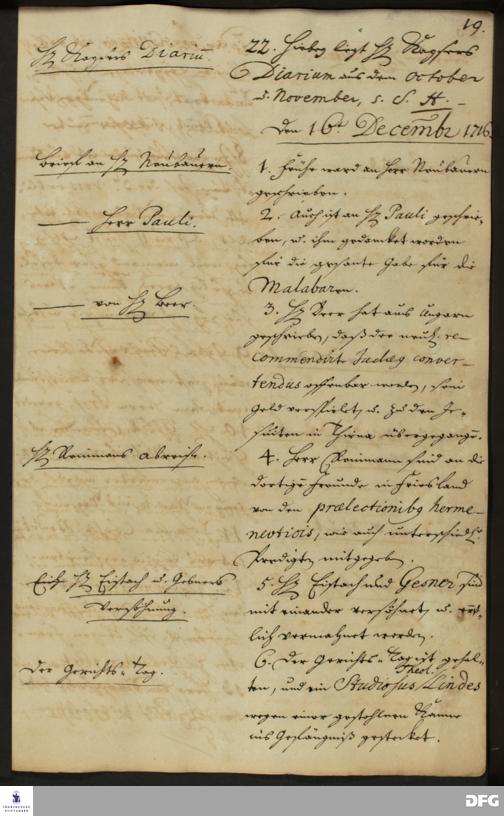 19.
H. Kaysers Diarium.
22. Hiebey liegt H. Kaysers
Diarium aus dem October
u. November, s. S. A. –
Den 16t Decembr 1716.
Brief an H. Neubauern.
1. Frühe ward an Herr Neubauern
geschrieben.
— Herr Pauli.
2. Auch ist an H. Pauli geschrie-
ben, u. ihm gedancket worden
für die gesante Gabe für die
Malabaren.
— von H. Beer.
3. H. Beer hat aus Ungarn
geschrieben, daß der neul. re-
commendirte Judæus conver-
tendus offenbar worden, sein
Geld verspielet, u. zu den Je-
suiten in Thirna übergegangen.
H. abreise.
4. Herr sind an die
dortige Freunde in Friesland
von den prælectionibus herme-
nevticis, wie auch unterschiedl.
Predigten mitgegeben.
H. Eistach u. Gesners
Versöhnung.
5. H. Eistach und Gesner sind
mit einander versöhnet, u.
lich vermahnet worden.
Der Gerichts-Tag.
6. Der Gerichts-Tag ist gehal-
ten, und ein Studiosus Theol. Lindes
wegen einer gestohlnen Kanne
ins Gefängniß gestecket.
FRANCKESCHE STIFTUNGEN
DFG